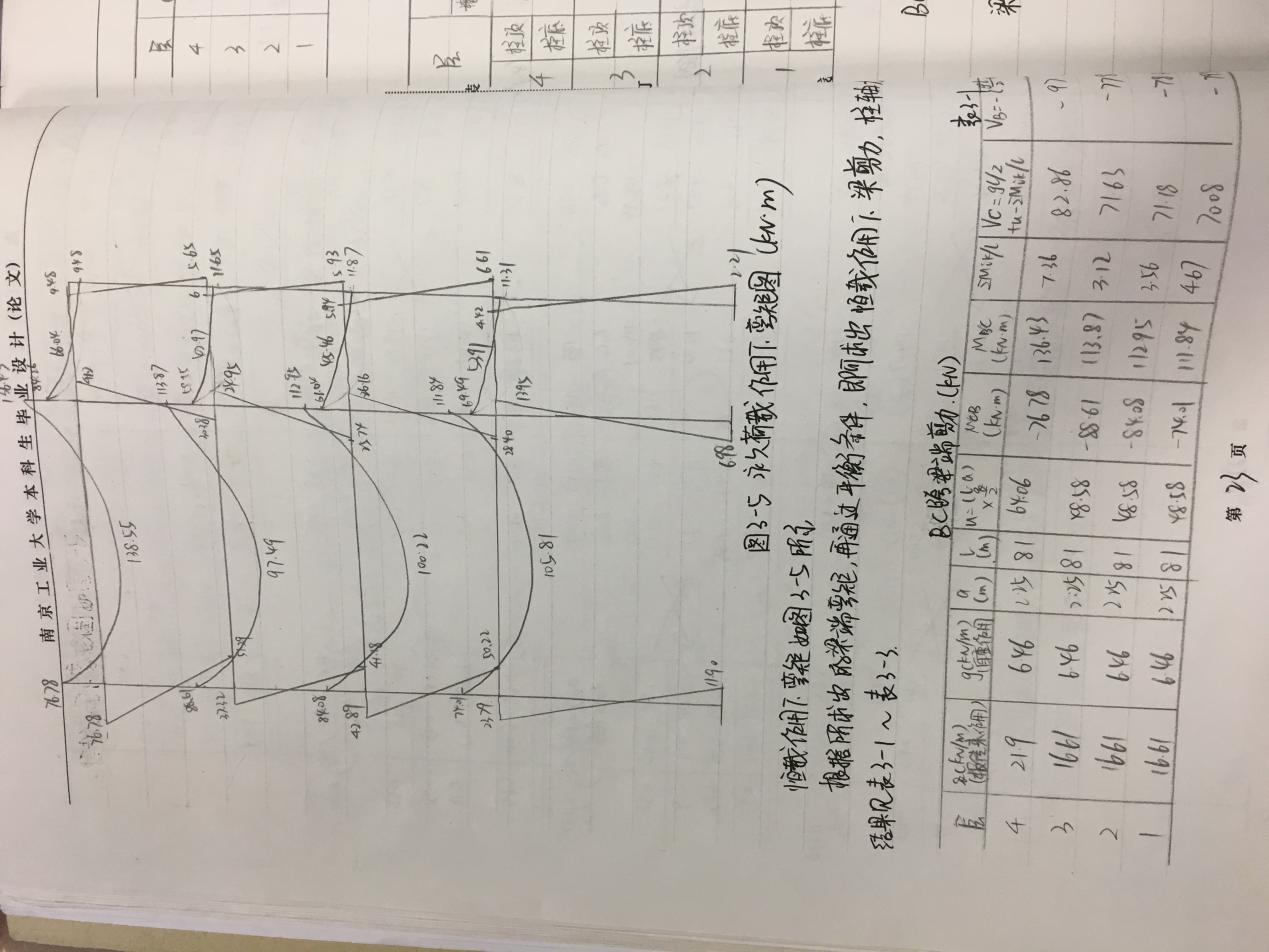 南京工业大学本科生毕业设计（论文）
76.78
76.78
138.55
66.04
9.48
9.48
113.87
40.97
6
5.65
11.65
24.95
88.61
27.32
51.29
97.49
112.95
45.46
5.94
5.93
11.87
26.16
25.74
84.08
42.89
41.18
100.22
111.84
69.49
53.91
4.42
6.61
11.31
13.95
28.40
74.01
23.79
50.22
105.81
11.90
6.98
2.21
图3-5 永久荷载作用下弯矩图(kN·m)
恒载作用下弯矩如图3-5所示
根据所求出的梁端弯矩,再通过平衡条件,即可求出恒载作用下梁剪力,柱轴
结果见表3-1～表3-3.
BC跨梁端剪力(kN) 表3-1
层 (板传来作用) g(kN/m)(自重作用) a(m) l(m) u=(l-a)× MCB(kN·m) MBC(kN·m) ΣMik/l VC=gl/2+u-ΣMik/l
4 21.9 6.46 2.25 8.1 64.06 -76.78 136.43 7.36 82.86 -97
3 16.61 6.46 2.25 8.1 48.58 -88.61 113.87 3.12 71.63
2 16.61 6.46 2.25 8.1 48.58 -84.08 112.95 3.56 71.18
1 16.61 6.46 2.25 8.1 48.58 -74.01 111.84 4.67 70.08
第 23 页
层
4
3
2
1
层
4 柱顶 柱底
3 柱顶 柱底
2 柱顶 柱底
1 柱顶 柱底